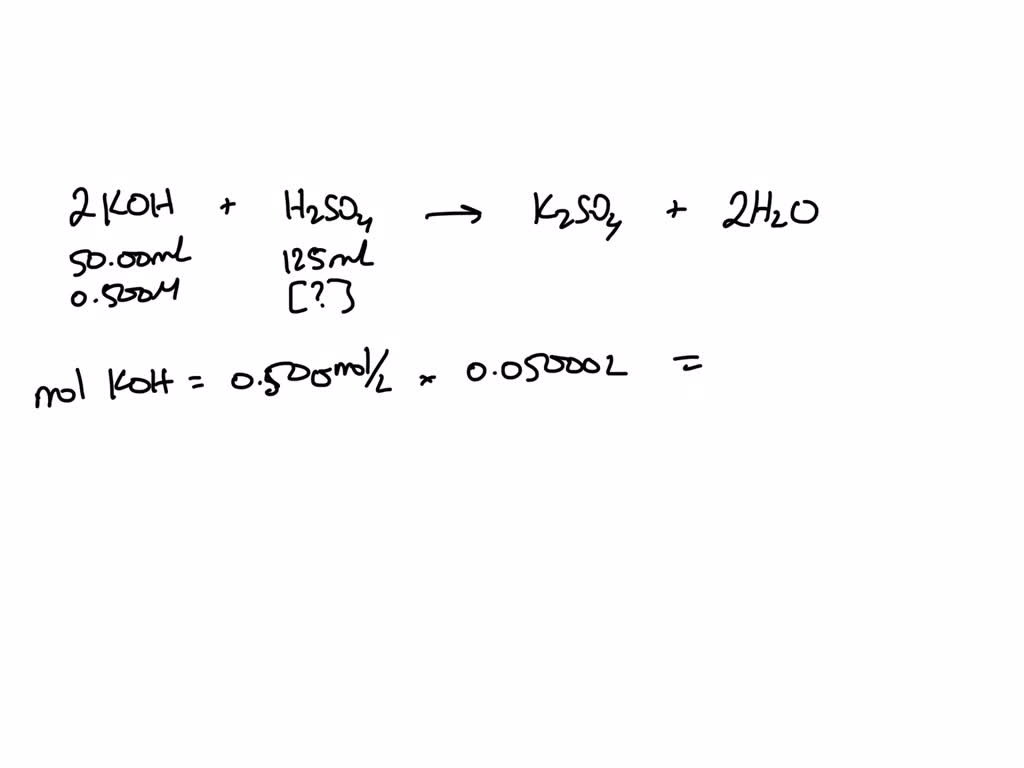 2KOH + H₂SO₄ → K₂SO₄ + 2H₂O
50.00mL 125mL
0.500M [?]
mol KOH = 0.500 mol/L × 0.05000L =